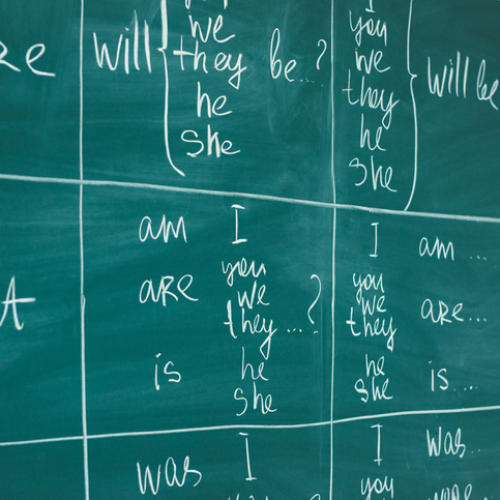 you
we
they
he
she
will
be...?
I
you
we
they
he
she
will be
am I
are
you
we
they ...?
is
he
she
I am ...
you
we
they
are...
he
she
is....
was I
I was..
you